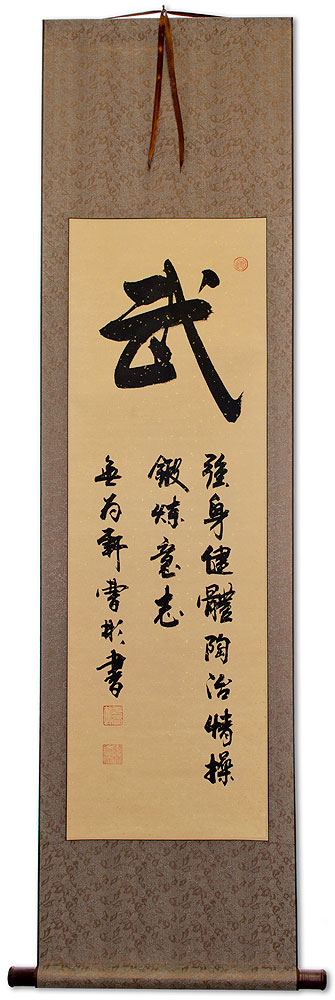 武
強身健體陶冶情操
鍛煉意志
無为軒曹彬書